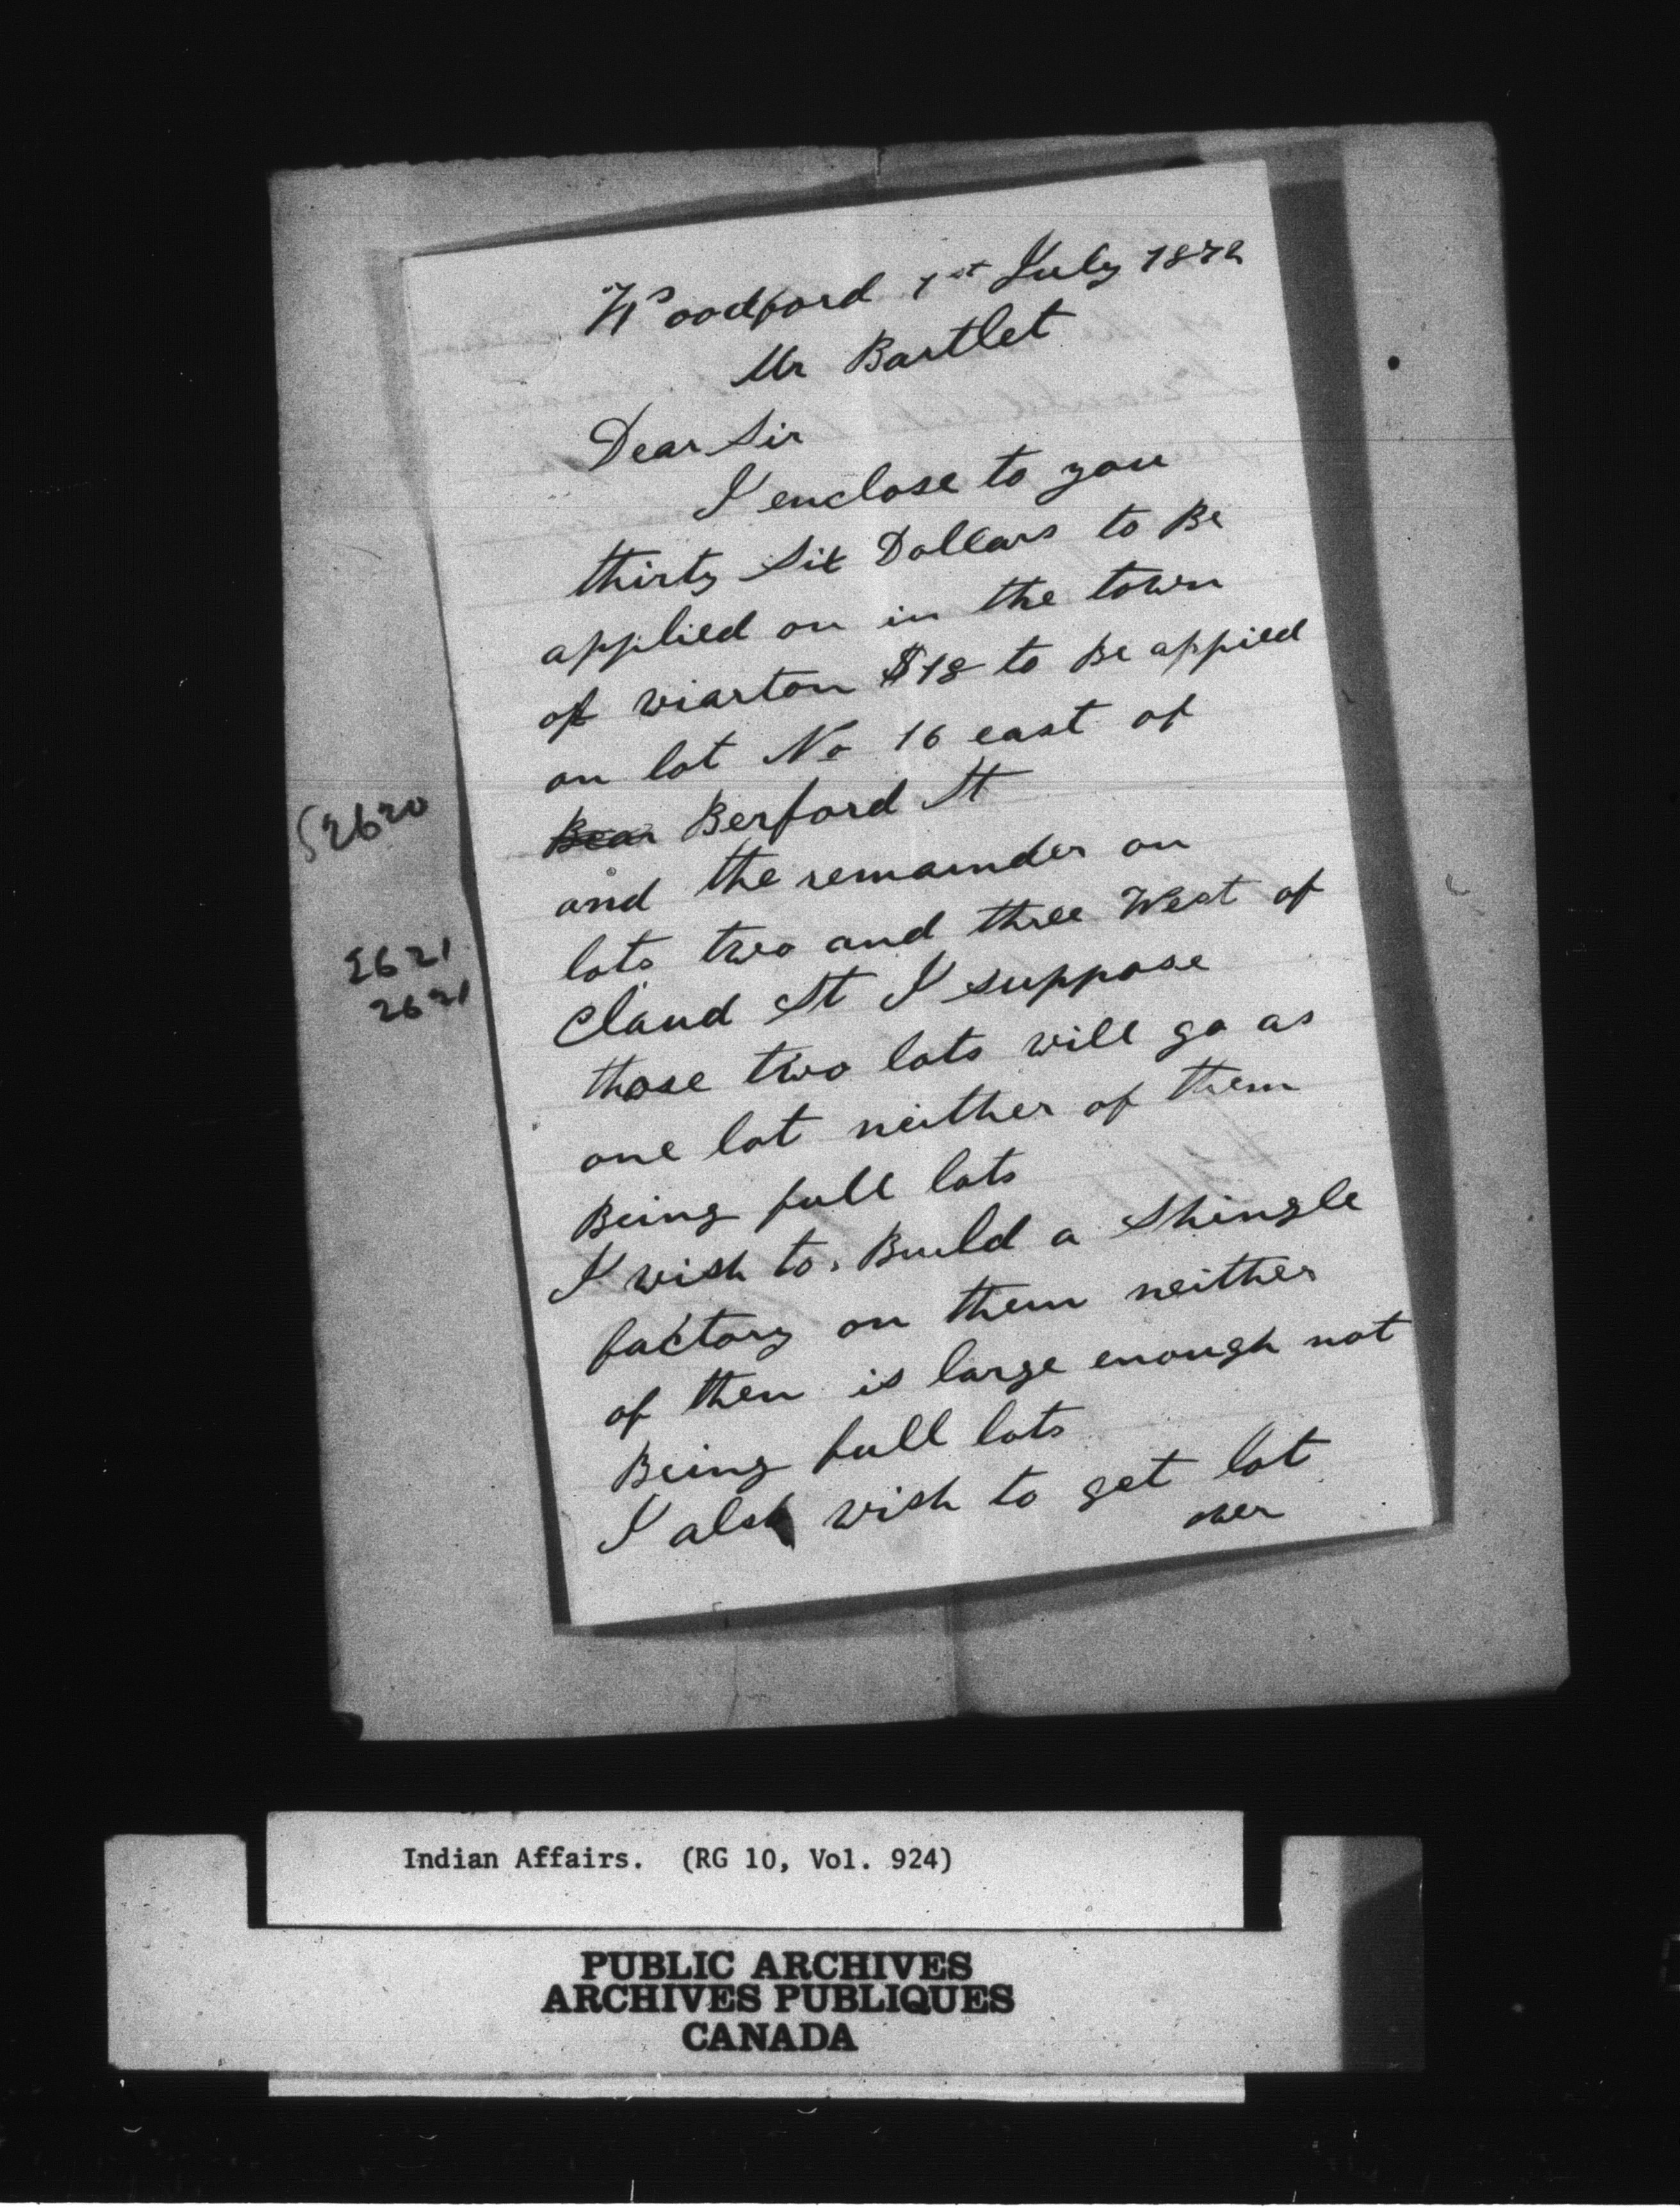 Woodford 1st July 1872
Mr Bartlet
Dear Sir
I enclose to you
thirty Six Dollars to Be
applied on in the town
of wiarton $18 to Be appied
on lot No 16 east of
Bear Berford St
and the remainder on
lots two and three West of
Claud St I suppose
those two lots will go as
one lot neither of them
Being full lots
I wish to Build a Shingle
factory on them neither
of then is large enough not
Being full lots
I also wish to get lot
over
2620
2621
2621
Indian Affairs. (RG 10, Vol. 924)
PUBLIC ARCHIVES
ARCHIVES PUBLIQUES
CANADA